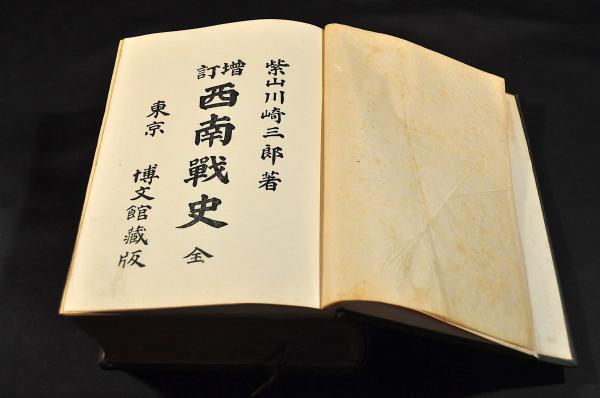 紫山川崎三郎著
増訂
西南戰史 全
東京 博文館藏版